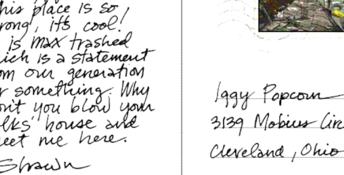 his place is so
rong, it's cool!
is max trashed
ich is a statement
om our generation
r something. Why
on't you blow your
lks' house and
eet me here.
Shawn
Iggy Popcorn
3139 Mobius Cir
Cleveland, Ohio